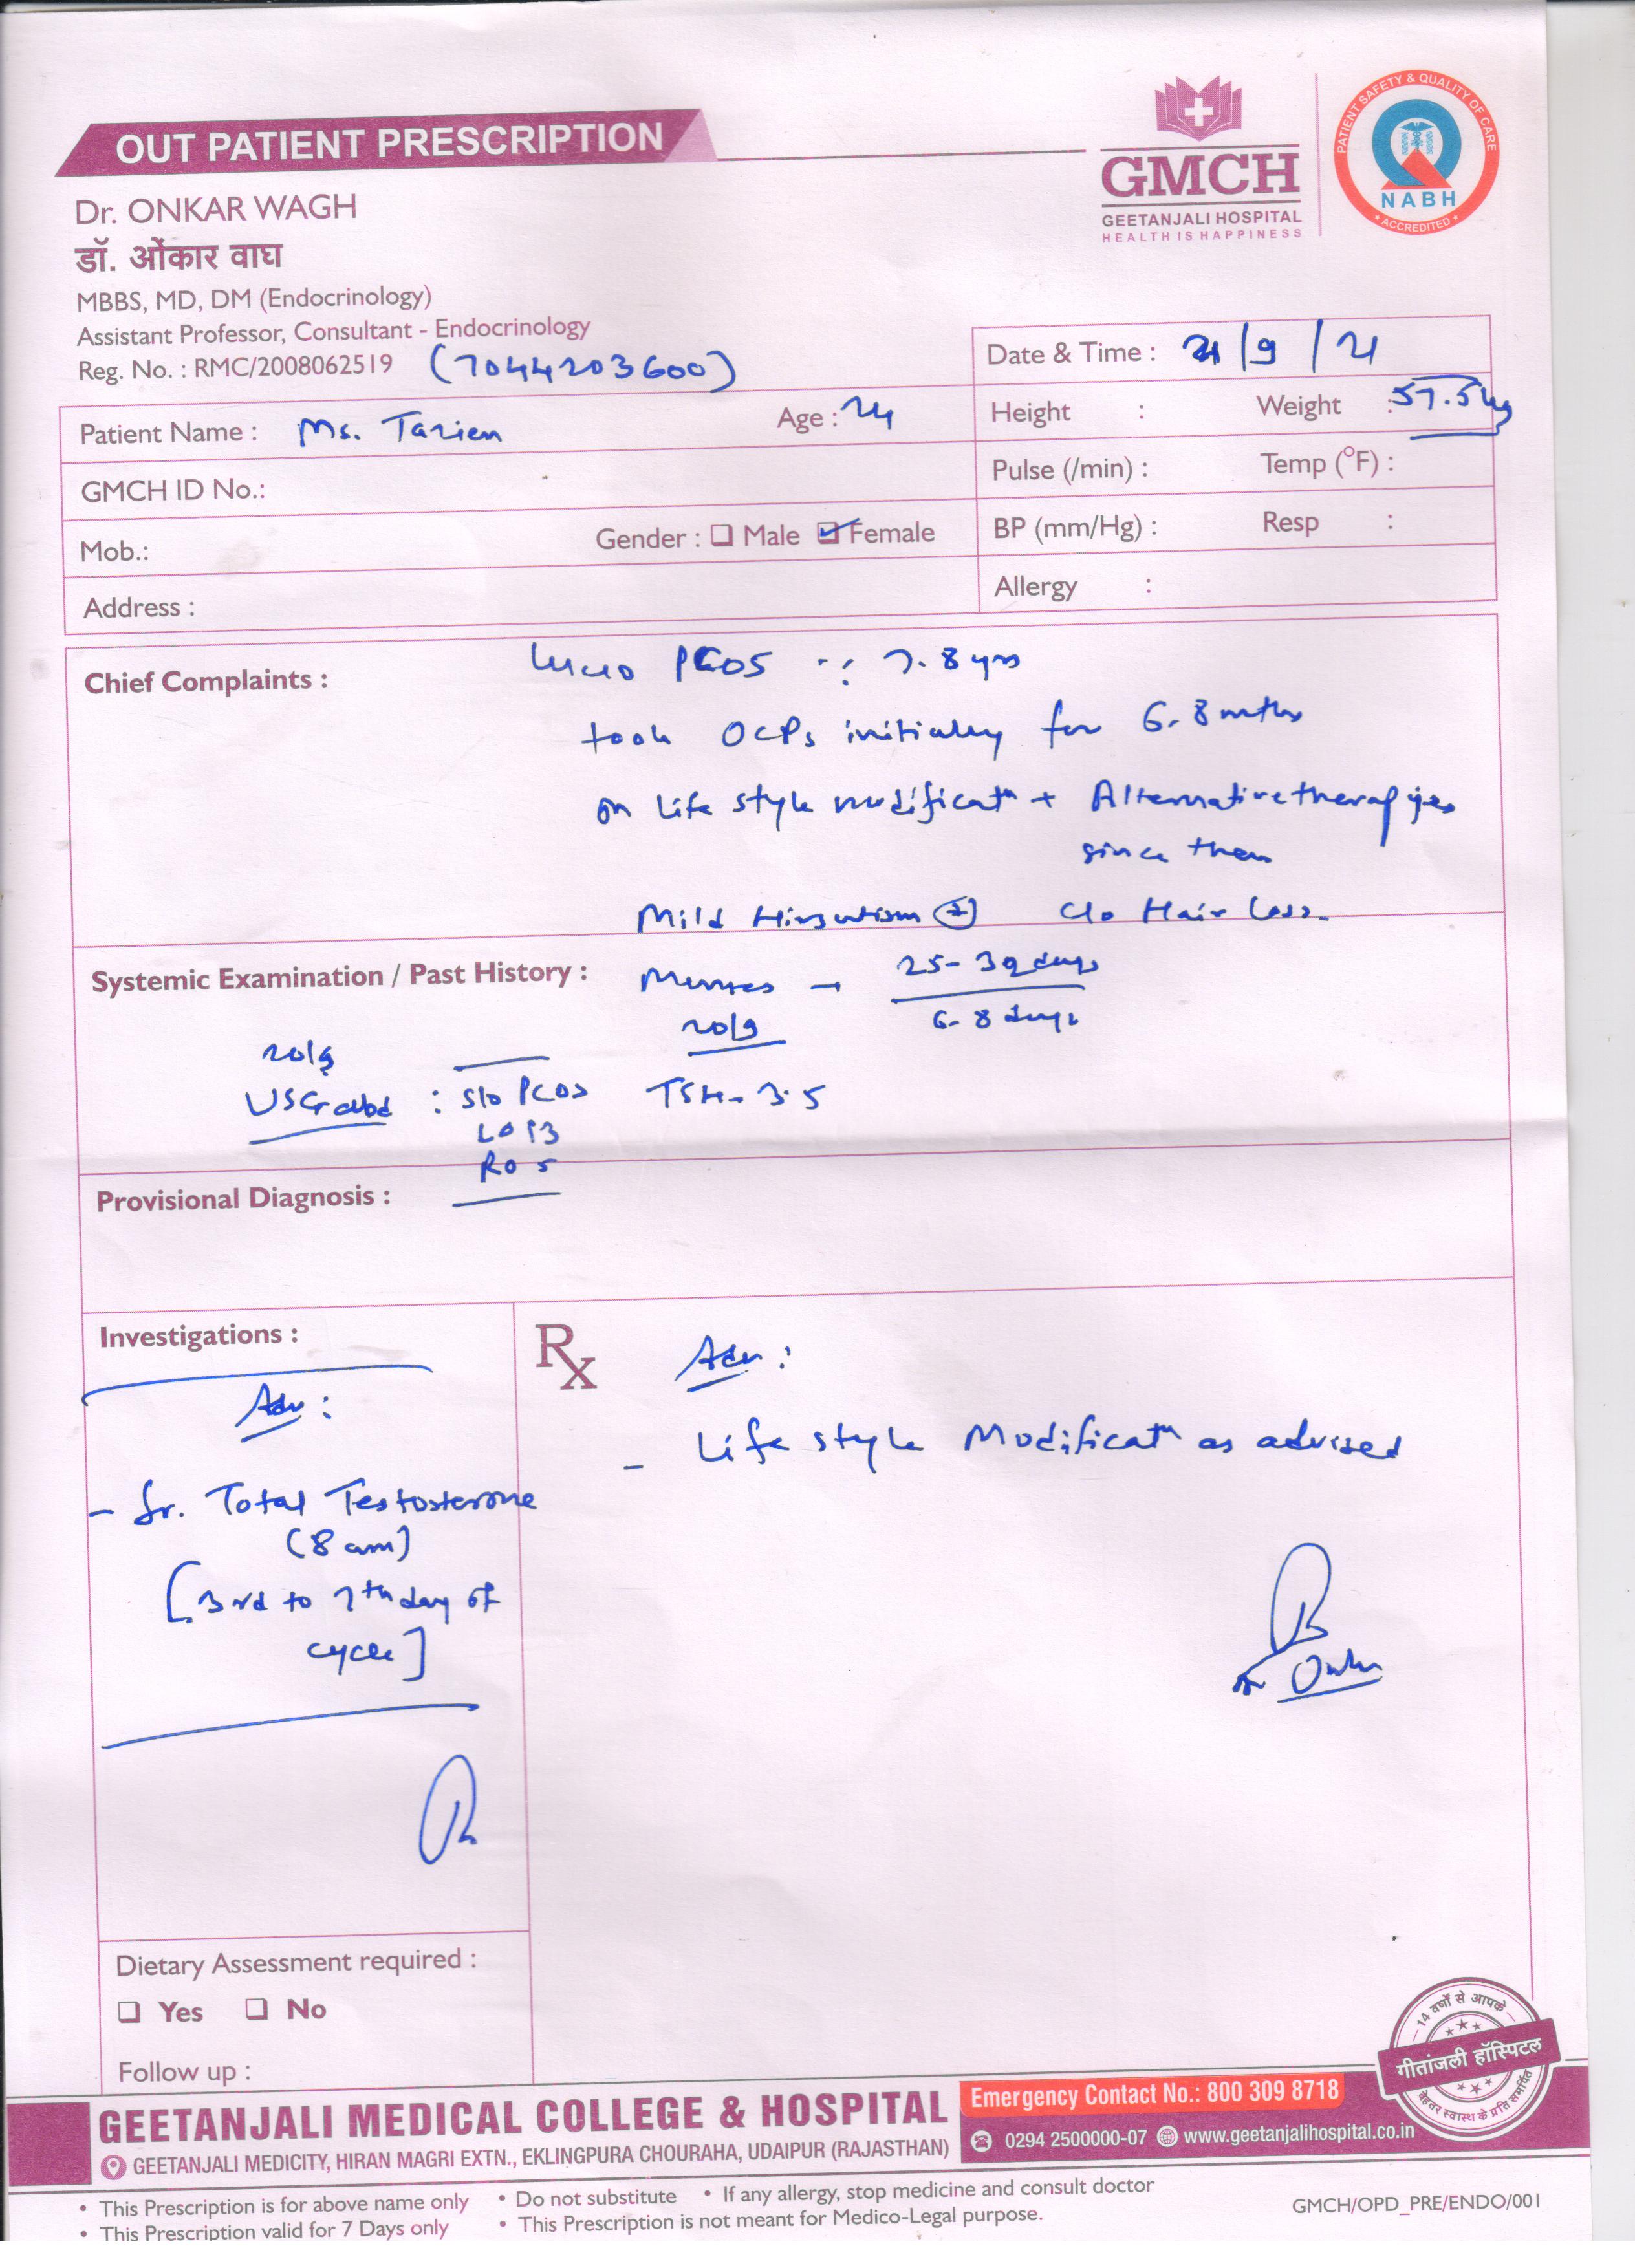 OUT PATIENT PRESCRIPTION
GMCH
GEETANJALI HOSPITAL
HEALTH IS HAPPINESS
PATIENT SAFETY & QUALITY OF CARE
NABH
ACCREDITED
Dr. ONKAR WAGH
डॉ. ओंकार वाघ
MBBS, MD, DM (Endocrinology)
Assistant Professor, Consultant - Endocrinology
Reg. No. : RMC/2008062519 (7044203600)
Date & Time : 21/9/21
Patient Name : Ms. Tarien Age : 24
Height : Weight : 57.5kg
GMCH ID No.:
Pulse (/min) : Temp (°F) :
Mob.: Gender : Male Female
BP (mm/Hg) : Resp :
Address :
Allergy :
Chief Complaints : PCOS 7-8 yrs
took OCPs initially for 6-8 mths
on Life style modificatn + Alternative therapies
since then
Mild Hirsutism + c/o Hair Loss.
Systemic Examination / Past History : Menses → 25-32 days
6-8 days
2019
2019
USG abd : s/o PCOS TSH - 3.5
LO 13
RO 5
Provisional Diagnosis :
Investigations :
Adv :
- Sr. Total Testosterone
(8 am)
[3rd to 7th day of
cycle]
Rx Adv :
- Life style Modificatn as advised
Dr Onkar
Dietary Assessment required :
Yes No
Follow up :
14 वर्षों से आपके
गीतांजली हॉस्पिटल
बेहतर स्वास्थ के प्रति समर्पित
GEETANJALI MEDICAL COLLEGE & HOSPITAL
GEETANJALI MEDICITY, HIRAN MAGRI EXTN., EKLINGPURA CHOURAHA, UDAIPUR (RAJASTHAN)
Emergency Contact No.: 800 309 8718
0294 2500000-07 www.geetanjalihospital.co.in
• This Prescription is for above name only • Do not substitute • If any allergy, stop medicine and consult doctor
• This Prescription valid for 7 Days only • This Prescription is not meant for Medico-Legal purpose.
GMCH/OPD_PRE/ENDO/001